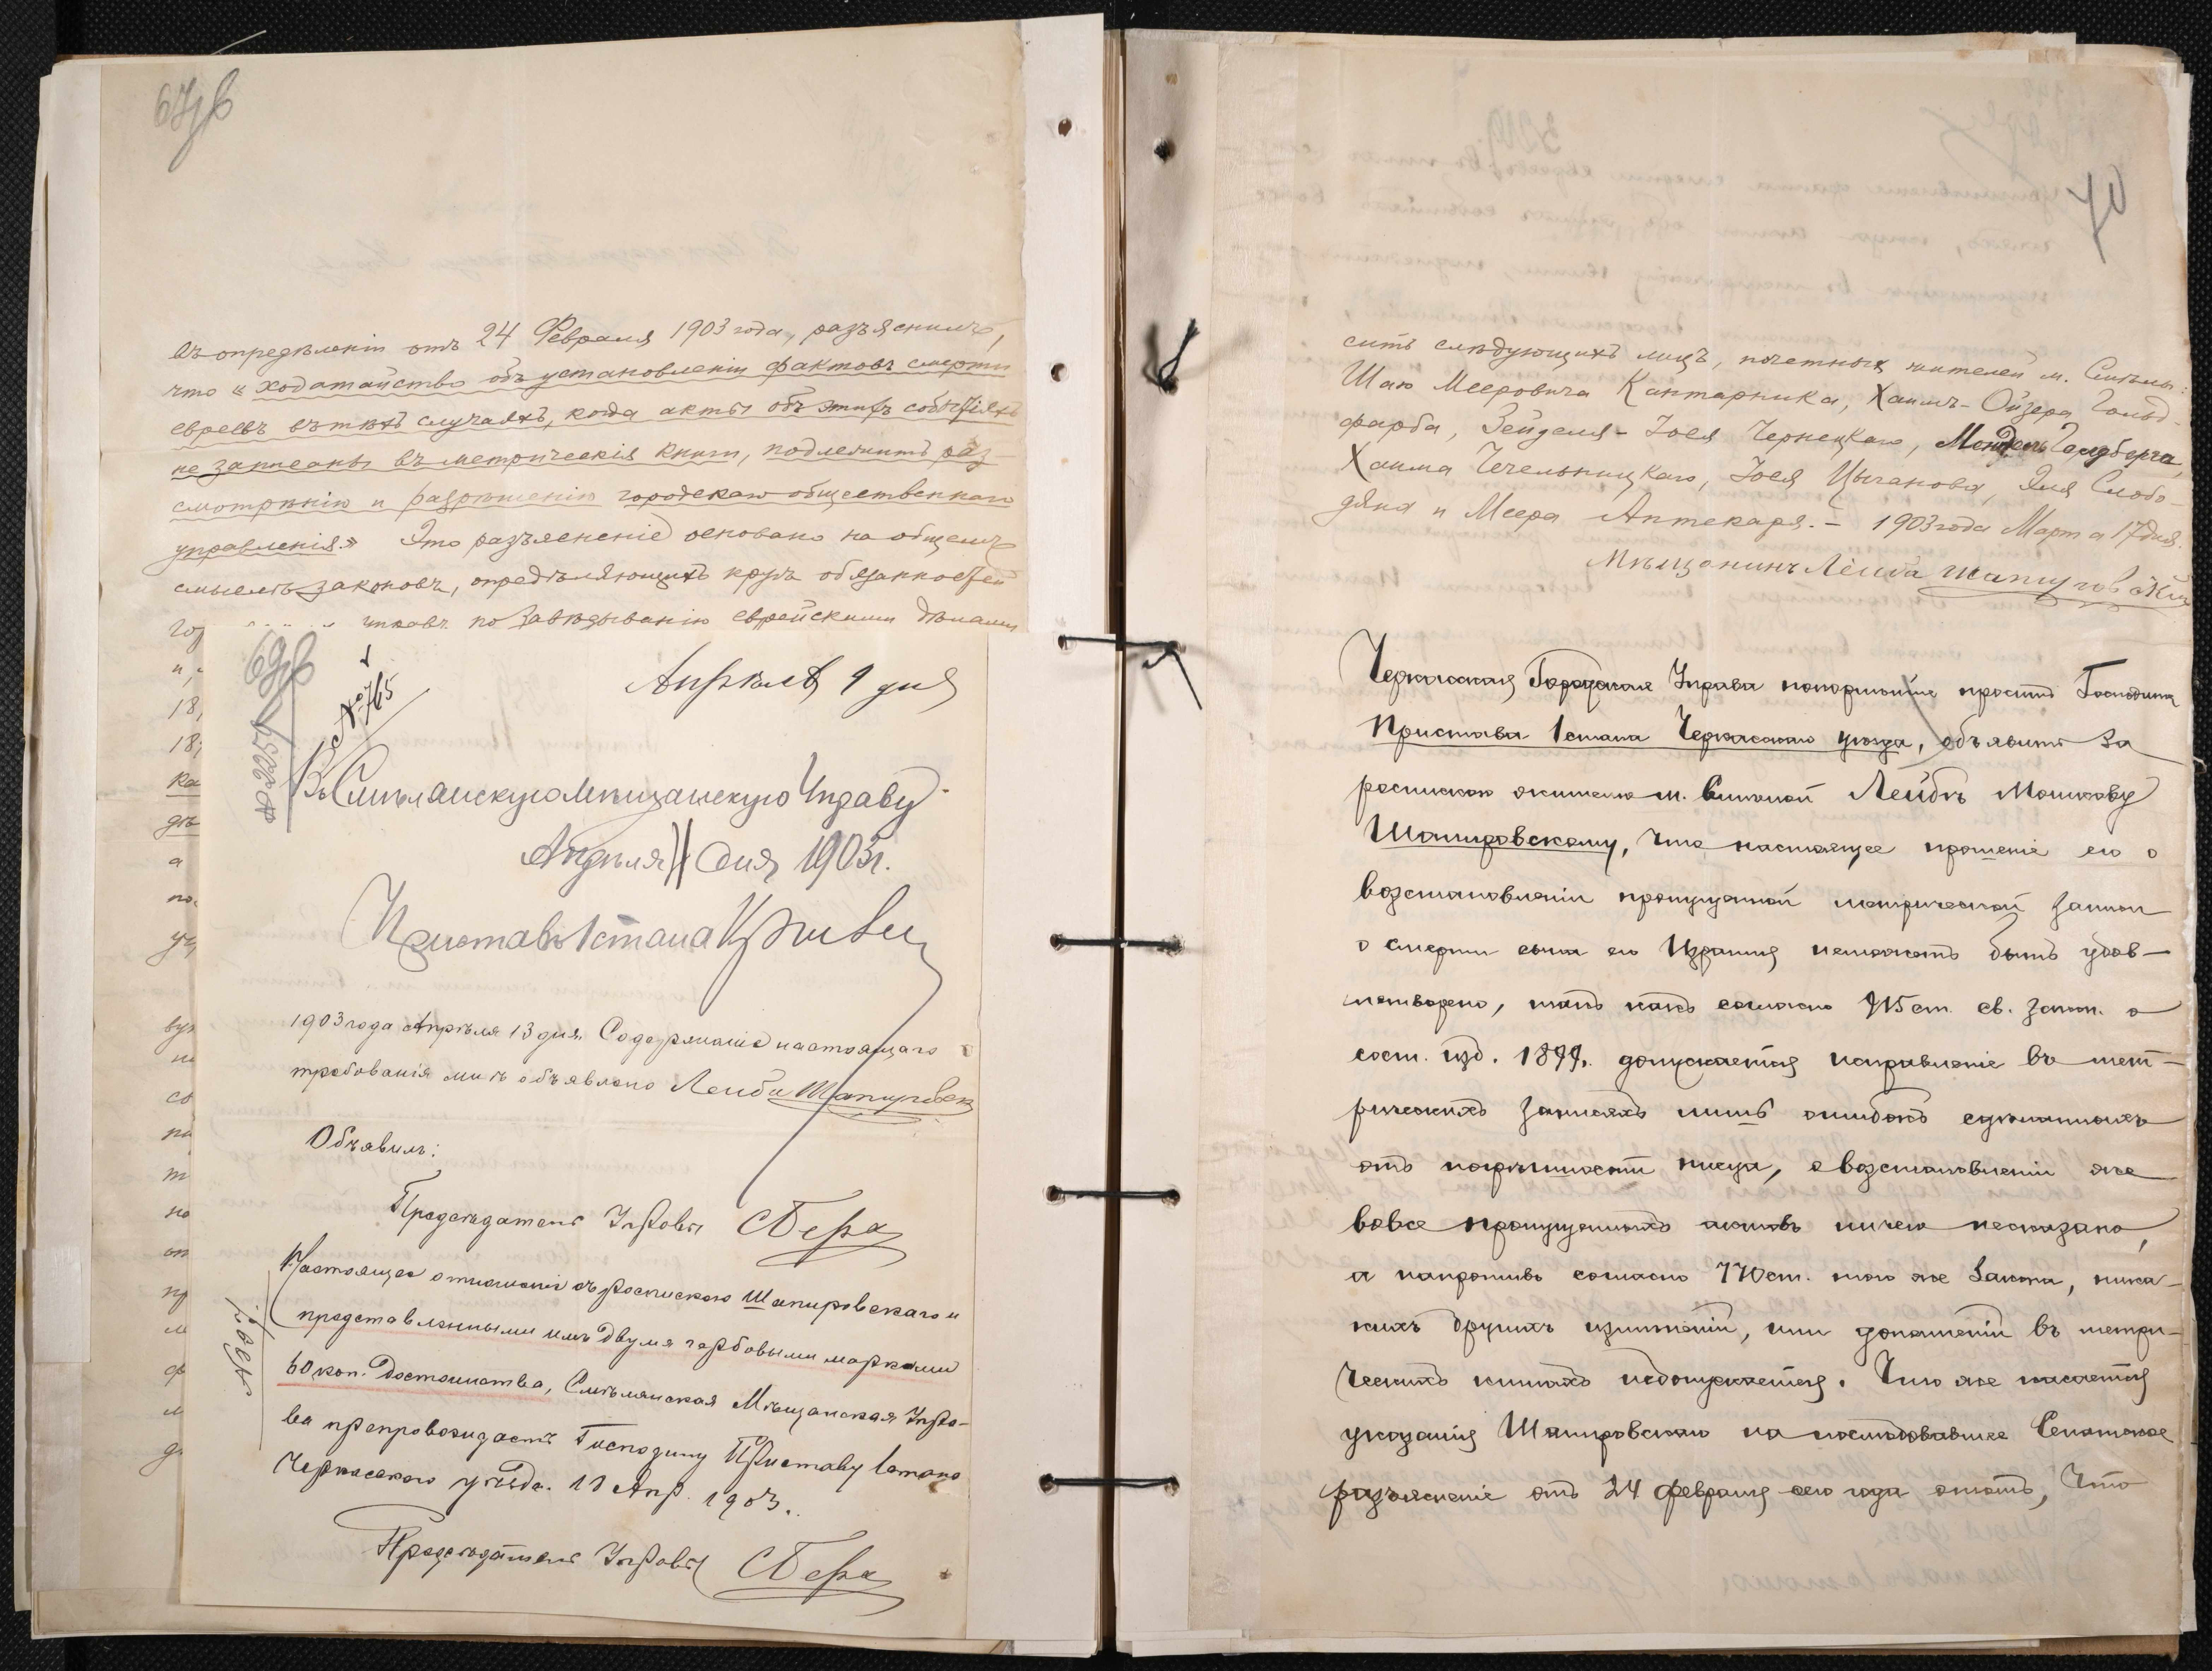 67об
въ опредѣленіи отъ 24 Февраля 1903 года, разъяснилъ,
что « ходатайство объ установленіи фактовъ смерти
евреевъ въ тѣхъ случаяхъ, когда акты объ этихъ событіяхъ
не записаны въ метрическія книги, подлежитъ раз-
смотрѣнію и разрѣшенію городскаго общественнаго
управленія.» Это разъясненіе основано на общемъ
смыслѣ законовъ, опредѣляющихъ кругъ обязанностей
по завѣдыванію еврейскими дѣлами
69об
№765
Апрѣля 9 дня
Въ Смѣлянскую мѣщанскую Управу
Апрѣля 11 дня 1903 г.
Приставъ 1 стана
1903 года Апрѣля 13 дня. Содержаніе настоящаго
требованія мнѣ объявлено Лейба Шапировск
Объявилъ:
Предсѣдатель Управы
Настоящее отношеніе съ роспискою Шапировскаго и
представленными имъ двумя гербовыми марками
60 коп. достоинства, Смѣлянская Мѣщанская Упра-
ва препровождаетъ Господину Приставу 1 стана
Черкасскаго уѣзда. 13 Апр. 1903.
Предсѣдатель Управы
70
сить слѣдующихъ лицъ, почетныхъ жителей м. Смѣлы:
Шаю Мееровича Кантарника, Хаимъ-Ойзера Гольд-
фарба, Зейделя-Іоея Чернецкаго,
Хаима Чечельницкаго, Іоея Цыганова, Эля Слобо-
дяна и Меера Аптекаря. – 1903 года Марта 17 дня.
Мѣщанинъ Лейба Шапировскій
Черкасская Городская Управа покорнѣйше проситъ Господина
Пристава 1 стана Черкасскаго уѣзда, объявить за
роспискою жителю м. Смѣлой Лейбѣ Мошкову
Шапировскому, что настоящее прошеніе его о
возстановленіи пропущенной метрической записи
о смерти сына его Израиля неможетъ быть удов-
летворено, такъ какъ согласно 915 ст. св. закон. о
сост. изд. 1899 г. допускается исправленіе въ мет-
рическихъ записяхъ лишь ошибокъ сдѣланныхъ
отъ погрѣшности писца, о возстановленіи же
вовсе пропущенныхъ актовъ ничего несказано,
а напротивъ согласно ст. того же Закона, ника-
кихъ другихъ измѣненій, или дополненій въ метри-
ческихъ книгахъ недопускается. Что же касается
указанія Шапировскаго на послѣдовавшее Сенатское
разъясненіе отъ 24 февраля сего года о томъ, что